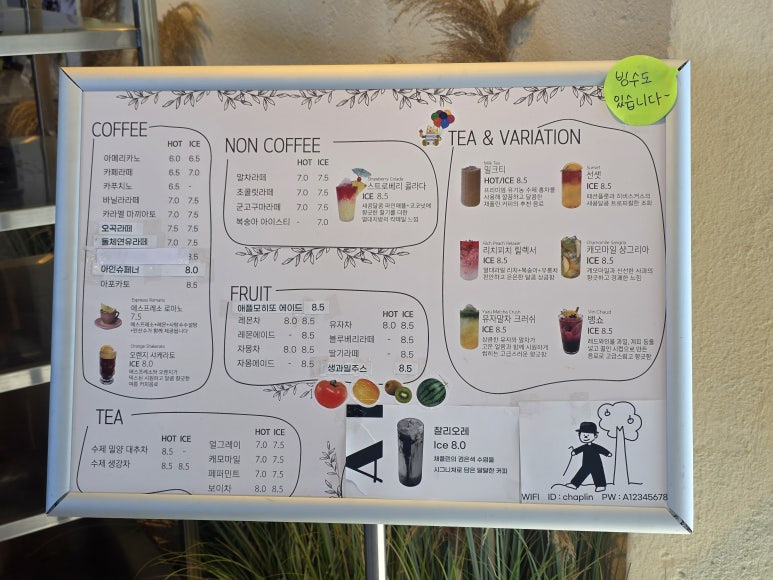 빙수도
있습니다~
COFFEE
HOT ICE
아메리카노 6.0 6.5
카페라떼 6.5 7.0
카푸치노 6.5 -
바닐라라떼 7.0 7.5
카라멜 마끼아또 7.0 7.5
오곡라떼 7.5 7.5
돌체연유라떼 7.0 7.5
8.5
아인슈페너 8.0
아포카토 8.5
Espresso Romano
에스프레소 로마노
7.5
에스프레소+레몬+사탕수수설탕
Orange Shakerato
오렌지 샤케라토
ICE 8.0
에스프레소와 오렌지가
여름 커피음료
NON COFFEE
HOT ICE
말차라떼 7.0 7.5
초콜릿라떼 7.0 7.5
군고구마라떼 7.0 7.5
복숭아 아이스티 - 7.0
Strawberry Colada
스트로베리 콜라다
ICE 8.5
새콤달콤 파인애플+코코넛에
향긋한 딸기를 더한
열대지방의 칵테일 느낌
FRUIT
애플모히또 에이드 8.5
레몬차 8.0 8.5
레몬에이드 - 8.5
자몽차 8.0 8.5
자몽에이드 - 8.5
HOT ICE
유자차 8.0 8.5
블루베리라떼 - 8.5
딸기라떼 - 8.5
생과일주스 8.5
TEA & VARIATION
Milk Tea
밀크티
HOT/ICE 8.5
프리미엄 유기농 수제 홍차를
사용해 깔끔하고 달콤한
채플린 커피의 추천 음료
Sunset
선셋
ICE 8.5
패션플룻과 히비스커스의
새콤달콤 트로피칼한 조화
Rich Peach Relaxer
리치피치 릴렉서
ICE 8.5
열대과일 리치+복숭아+우롱차
천연의 은은한 달콤 상큼함
Chamomile Sangria
캐모마일 상그리아
ICE 8.5
캐모마일과 신선한 사과의
향긋하고 경쾌한 느낌
Yuzu Matcha Crush
유자말차 크러쉬
ICE 8.5
상큼한 유자와 말차가
고운 얼음과 함께 시원하게
씹히는 고급스러운 향긋함
Vin Chaud
뱅쇼
ICE 8.5
레드와인을 과일, 계피 등을
넣고 끓인 시럽으로 만든
음료로 고급스럽고 향긋함
TEA
HOT ICE
수제 밀양 대추차 8.5 -
수제 생강차 8.5 8.5
HOT ICE
얼그레이 7.0 7.5
캐모마일 7.0 7.5
페퍼민트 7.0 7.5
보이차 8.0 8.5
찰리오레
Ice 8.0
채플린의 검은색 수염을
시그니처로 담은 달달한 커피
WIFI ID : chaplin PW : A12345678